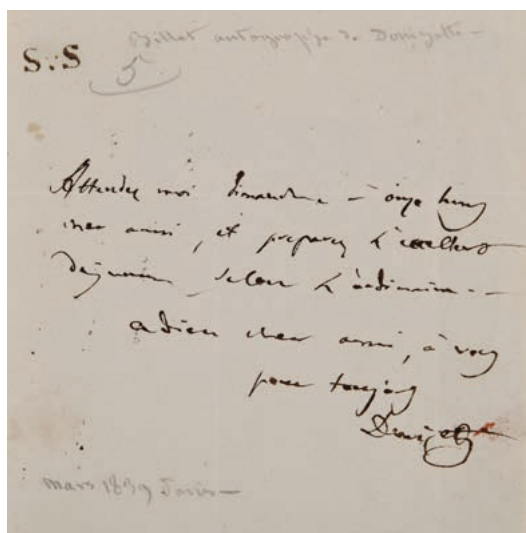 Billet autographe de Donizetti —
S.S
5
Attendez moi dimanche — à onze heures
cher ami, et preparez l'excellent
dejeuner selon l'ordinaire. —
adieu cher ami, à vous
pour toujours
Donizetti
mars 1839 Paris —